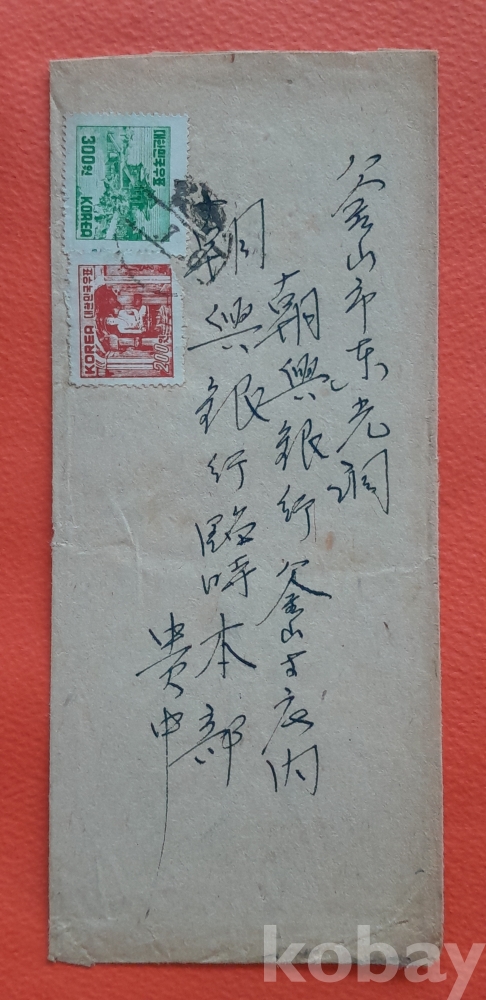 釜山市东光洞
朝興銀行釜山支店内
朝興銀行臨時本部
貴中
대한민국우표
300원
KOREA
KOREA 대한민국우표
200원
kobay